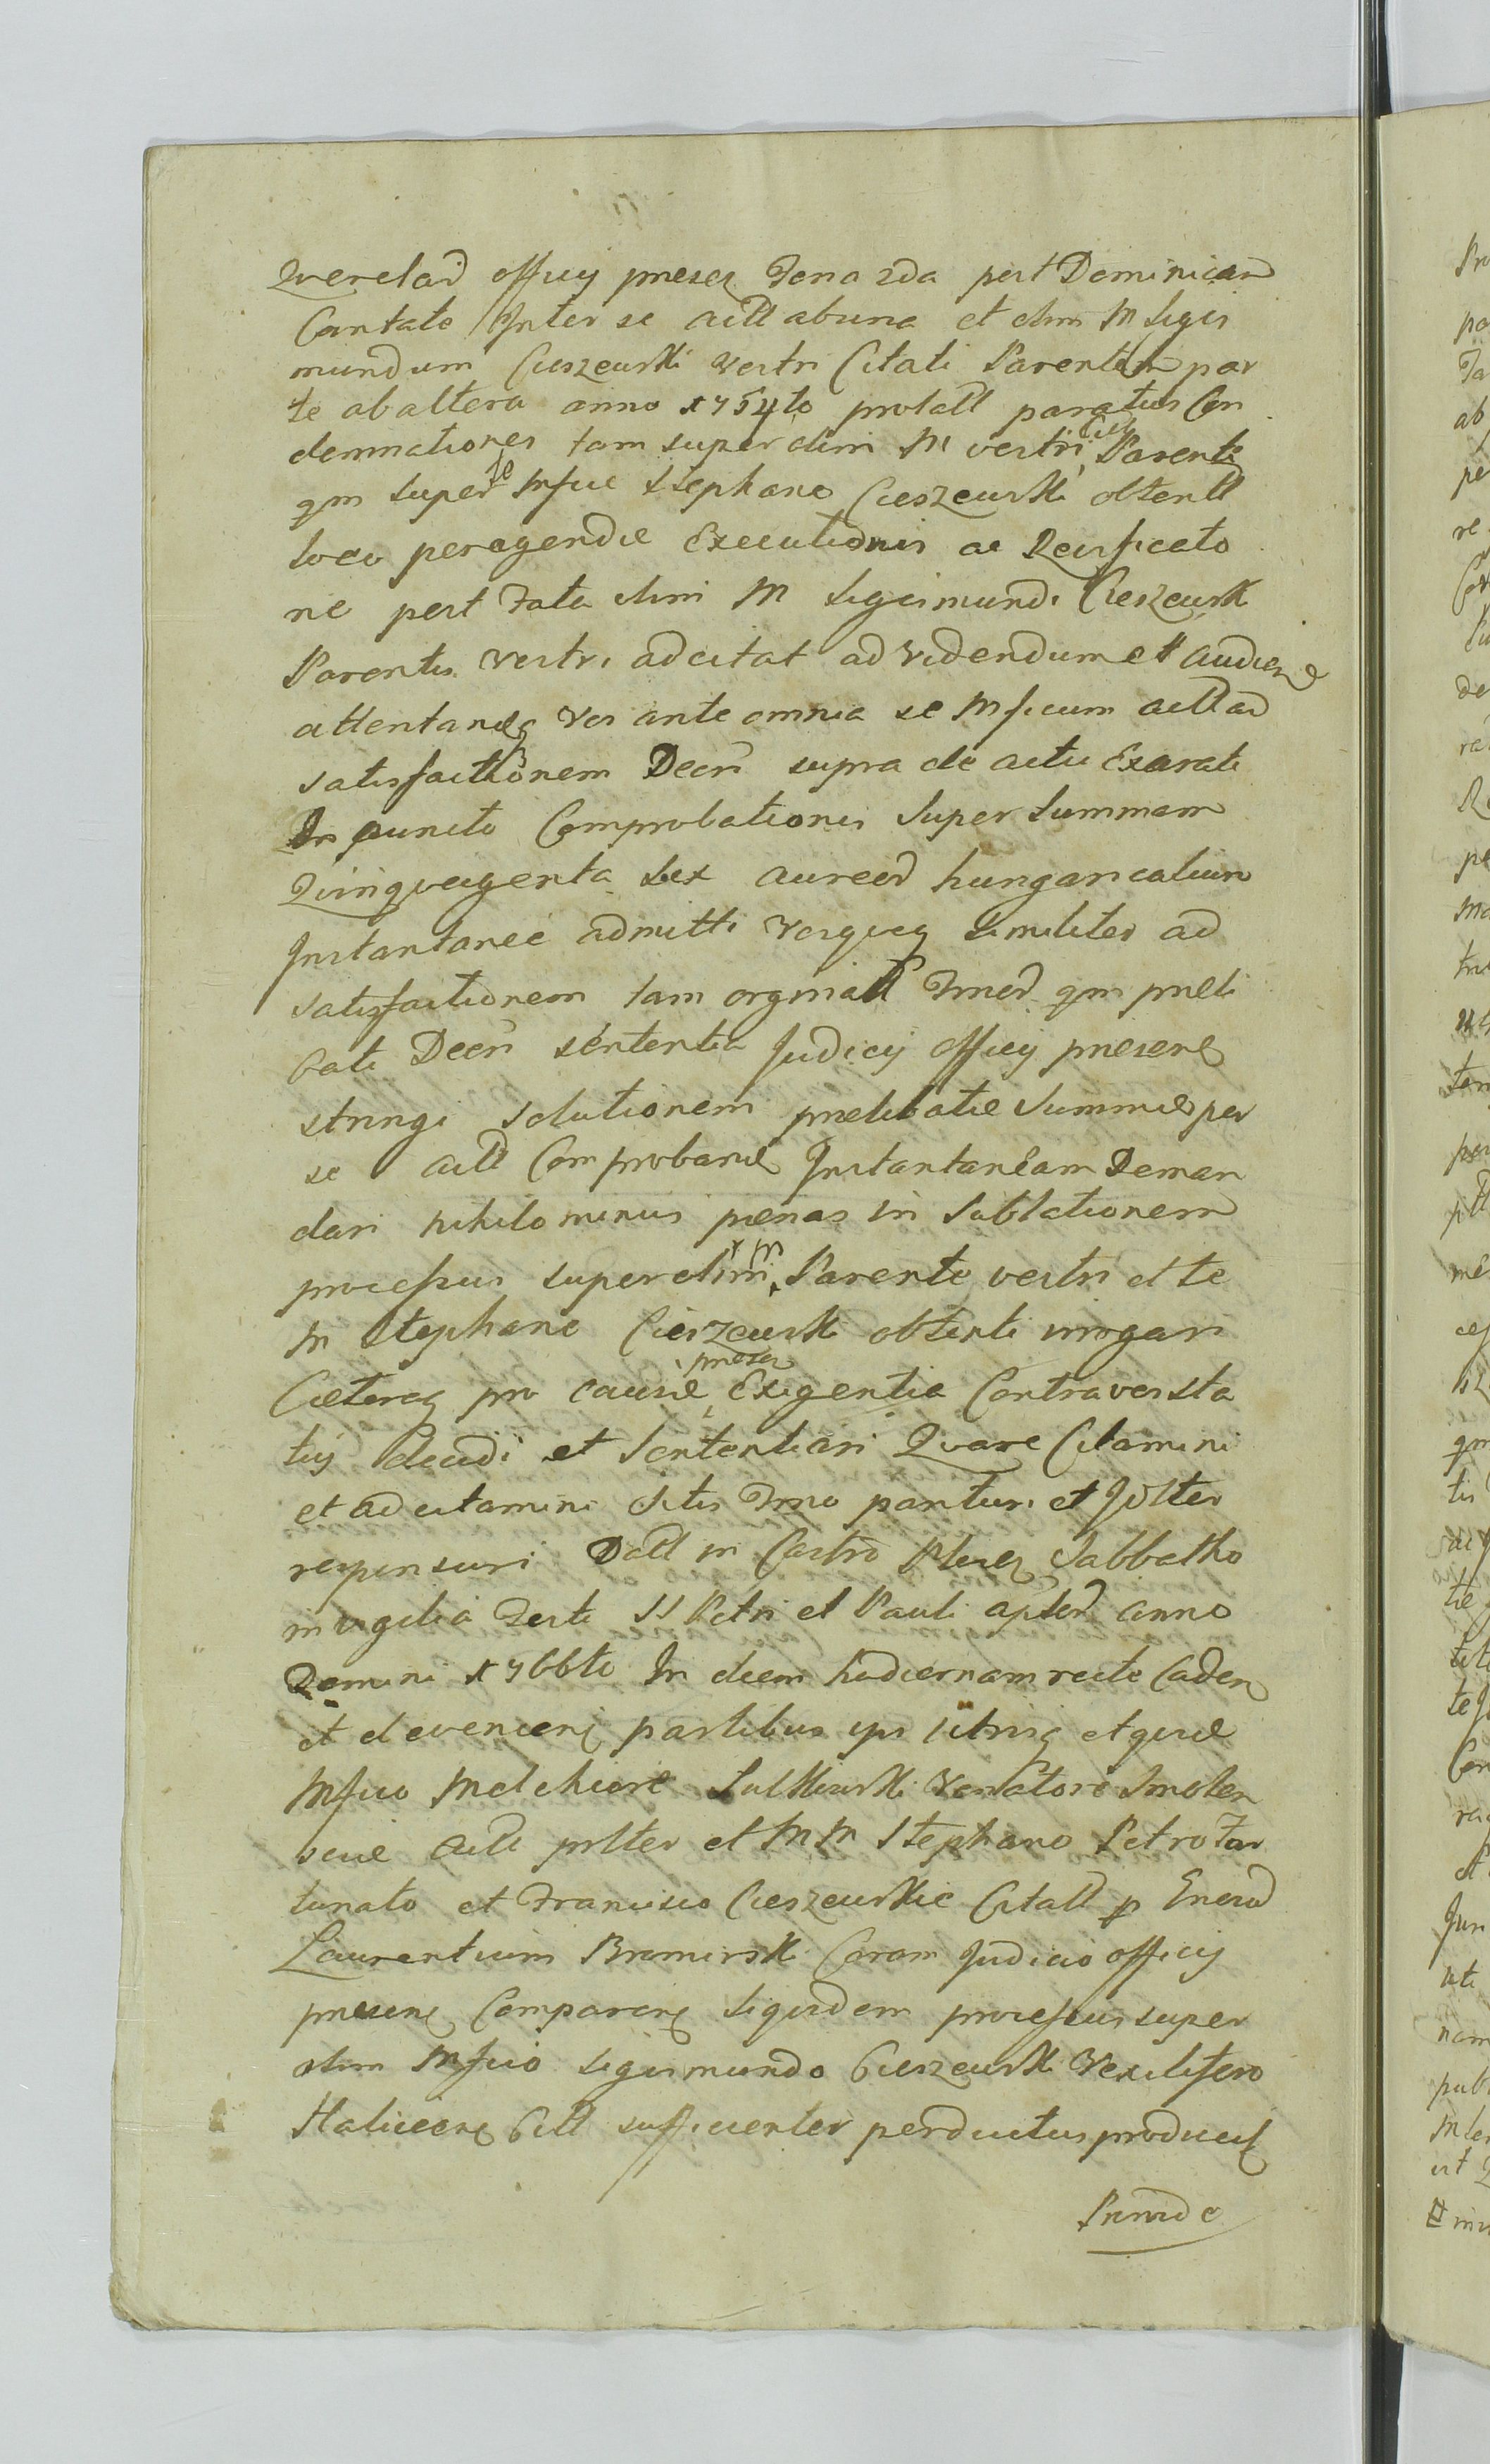 Querelar officij presen Feria 2da post Dominicam
Cantate Inter se actt ab una et olim M Sigis
mundum Cieszewski vestri Citati Parentem par
te ab altera anno 1754to prolatt paratus Con
demnationes tam super olim M vestri Cit Parente
qm super te Mfico Stephano Cieszewski obtentt
loco peragendæ Executionis ac Reisficato
ne post Fata olim M Sigismundi Cieszewsk
Parentis vestri adcitat ad videndum et audiend
attentandq vos ante omnia se Mficum actt ad
satisfactionem Decri supra de actu Exarati
In puncto Comprobationis Super Summam
Quinquaginta sex aureor hungaricalium
Instantanee admitti vosqueq similiter ad
satisfactionem tam orginatt Fmor qm præli
bati Decri sententia Judicij officij presenq
stringi solutionem prælibatæ Summæ per
se actt Comprobandæ Instantaneam Deman
dari nihilominus pœnas in Sublationem
processus super olim M Parente vestri et te
M Stephano Cieszewski obtenti irrogari
Cæteraq pro causæ presen Exigentia Controversita
tijs decidi et Sententiari Quare Citamini
et adcitamini Sitis Fmo parituri et Jdtter
responsuri Datt in Castro Plesen Sabbatho
in vigilia Festi SS Petri et Pauli aptor anno
Domini 1766to In diem hodiernam recte Caden
et devenienq partibus ips utrisq etquæ
Mfico Melchiore Sulkiewski Venatore Smolen
sciæ actt pltter et MM Stephano Petro For
tunato et Francisco Cieszewskie Citatt p Gnerod
Laurentium Bromirski Coram Judicio officij
presenq Comparenq siquidem processus super
olim Mfico Sigismundo Cieszewski Vexilifero
Haliciensq Citt sufficienter perductus producit
Proinde